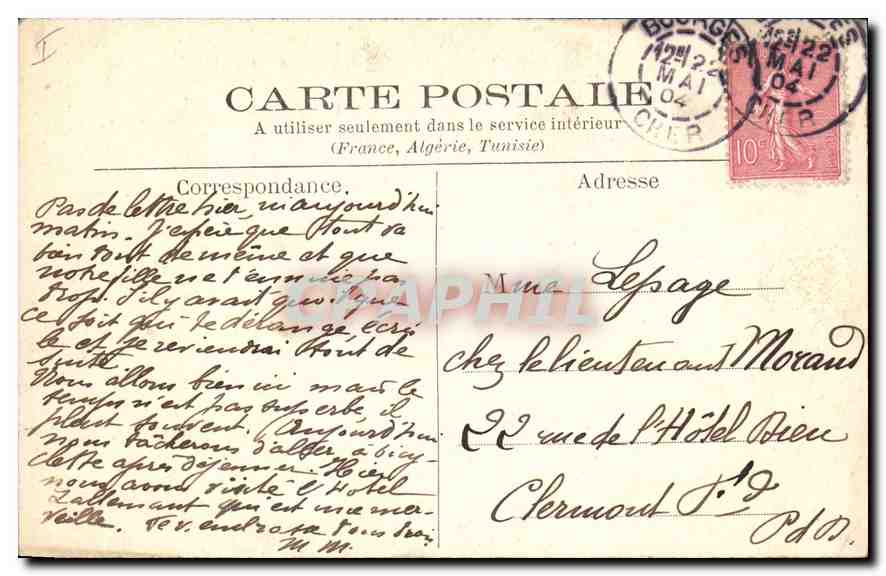 I
CARTE POSTALE
A utiliser seulement dans le service intérieur
(France, Algérie, Tunisie)
BOURGES
22
MAI
04
CHER
22
MAI
04
CHER
10c
Correspondance.
Pas de lettre hier, ni aujourd'hui
matin. J'espère que tout va
bien tout de même et que
notre fille ne t'ennuie pas
trop. S'il y avait quoi que
ce soit qui te dérange, écris
le et je reviendrai tout de
suite.
Nous allons bien ici mais le
temps n'est pas superbe, il
pleut souvent. Aujourd'hui
nous tâcherons d'aller à bicy-
clette après déjeuner. Hier
nous avons visité l'Hotel
Lallemant qui est une mer-
veille.
M M.
Adresse
Mme Lepage
chez le lieutenant Morand
22 rue de l'Hôtel Dieu
Clermont Fd
P d D.
CPAPHIL